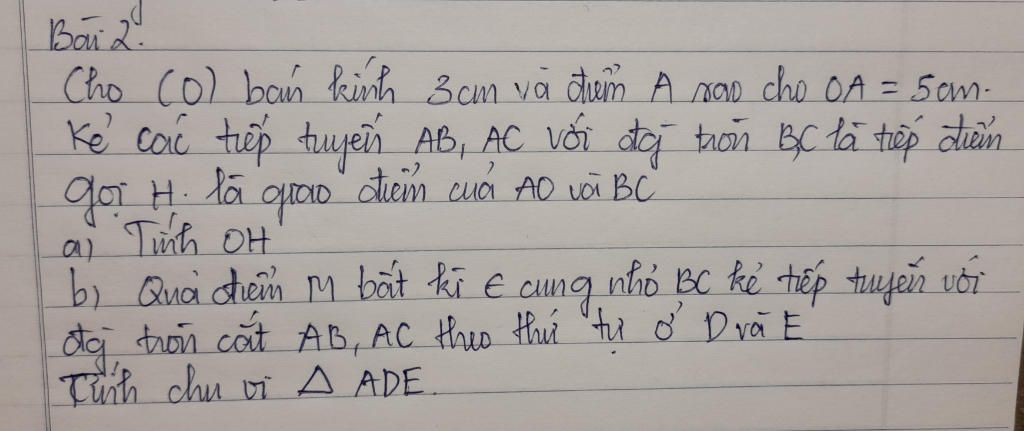 Bài 2:
Cho (O) bán kính 3cm và điểm A sao cho OA = 5cm.
Kẻ các tiếp tuyến AB, AC với đg tròn B,C là tiếp điểm
gọi H. là giao điểm của AO và BC
a) Tính OH
b) Qua điểm M bất kì ∈ cung nhỏ BC kẻ tiếp tuyến với
đg tròn cắt AB, AC theo thứ tự ở D và E
Tính chu vi △ ADE.